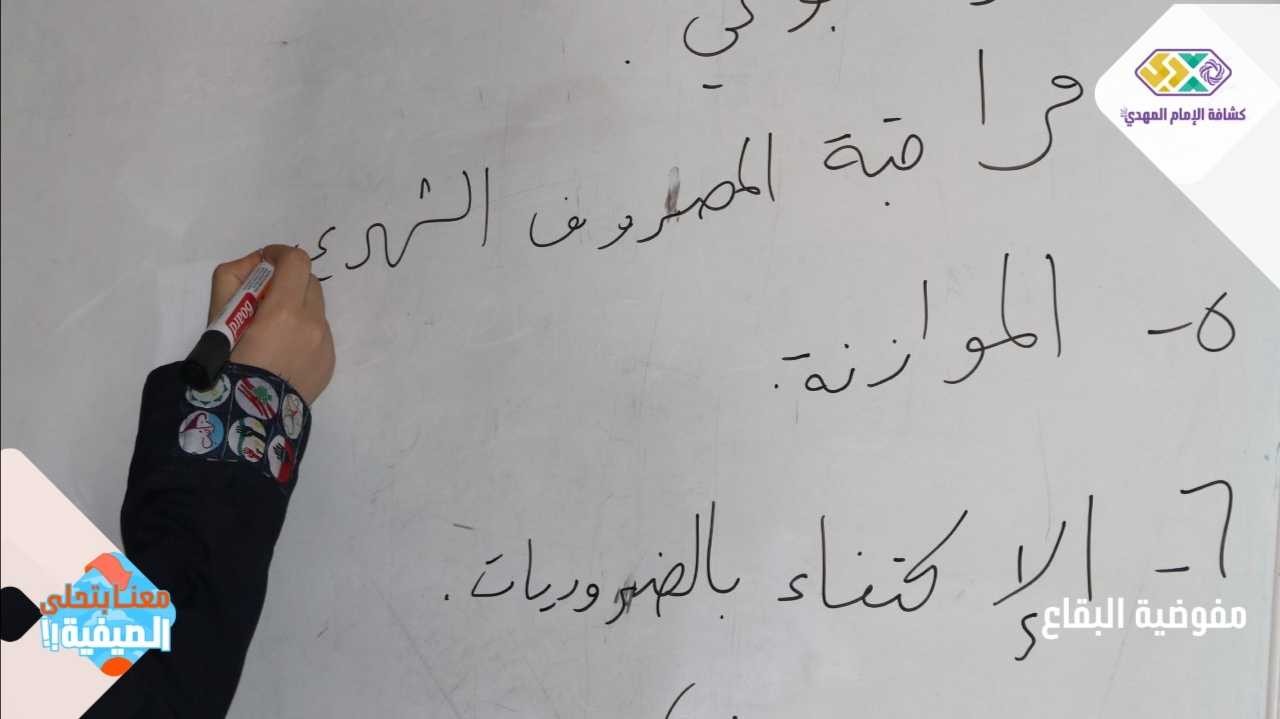 مراقبة المصروف الشهري
٥- الموازنة.
٦- الإكتفاء بالضروريات.
Board
كشافة الإمام المهدي
مفوضية البقاع
معنا بتحلى
الصيفية!!